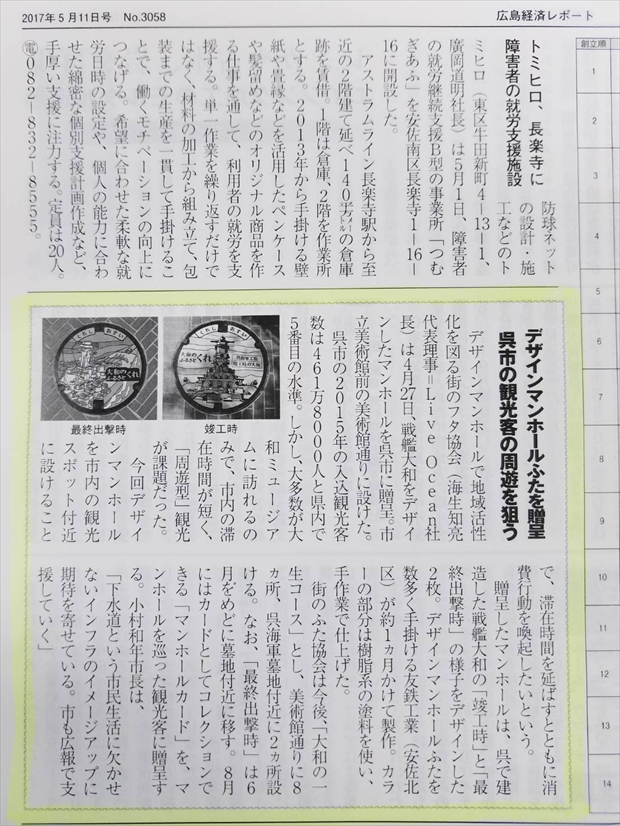 2017年5月11日号 No.3058
広島経済レポート
創立順
1
2
3
4
5
6
7
8
9
10
11
12
13
14
トミヒロ、長楽寺に
障害者の就労支援施設
防球ネット
の設計・施
工などのト
ミヒロ（東区牛田新町4―13―1、
廣岡道明社長）は5月1日、障害者
の就労継続支援B型の事業所「つむ
ぎあふ」を安佐南区長楽寺1―16―
16に開設した。
アストラムライン長楽寺駅から至
近の2階建て延べ140平方㍍の倉庫
跡を賃借。1階は倉庫、2階を作業所
とする。2013年から手掛ける壁
紙や畳縁などを活用したペンケース
や髪留めなどのオリジナル商品を作
る仕事を通して、利用者の就労を支
援する。単一作業を繰り返すだけで
はなく、材料の加工から組み立て、包
装までの生産を一貫して手掛けるこ
とで、働くモチベーションの向上に
つなげる。希望に合わせた柔軟な就
労日時の設定や、個人の能力に合わ
せた綿密な個別支援計画作成など、
手厚い支援に注力する。定員は20人。
電082―832―8555。
デザインマンホールふたを贈呈
呉市の観光客の周遊を狙う
デザインマンホールで地域活性
化を図る街のフタ協会（海生知亮
代表理事＝Live Ocean社
長）は4月27日、戦艦大和をデザイ
ンしたマンホールを呉市に贈呈。市
立美術館前の美術館通りに設けた。
呉市の2015年の入込観光客
数は461万8000人と県内で
5番目の水準。しかし、大多数が大
和ミュージア
ムに訪れるの
みで、市内の滞
在時間が短く、
「周遊型」観光
が課題だった。
今回デザイ
ンマンホール
を市内の観光
スポット付近
に設けること
で、滞在時間を延ばすとともに消
費行動を喚起したいという。
贈呈したマンホールは、呉で建
造した戦艦大和の「竣工時」と「最
終出撃時」の様子をデザインした
2枚。デザインマンホールふたを
数多く手掛ける友鉄工業（安佐北
区）が約1ヵ月かけて製作。カラ
ーの部分は樹脂系の塗料を使い、
手作業で仕上げた。
街のふた協会は今後、「大和の一
生コース」とし、美術館通りに8
ヵ所、呉海軍墓地付近に2ヵ所設
ける。なお、「最終出撃時」は6
月をめどに墓地付近に移す。8月
にはカードとしてコレクションで
きる「マンホールカード」を、マ
ンホールを巡った観光客に贈呈す
る。小村和年市長は、
「下水道という市民生活に欠かせ
ないインフラのイメージアップに
期待を寄せている。市も広報で支
援していく」
くれし おすい
大和の
ふるさと
くれ
最終出撃時
くれし おすい
大和の
ふるさと
くれ
竣工時